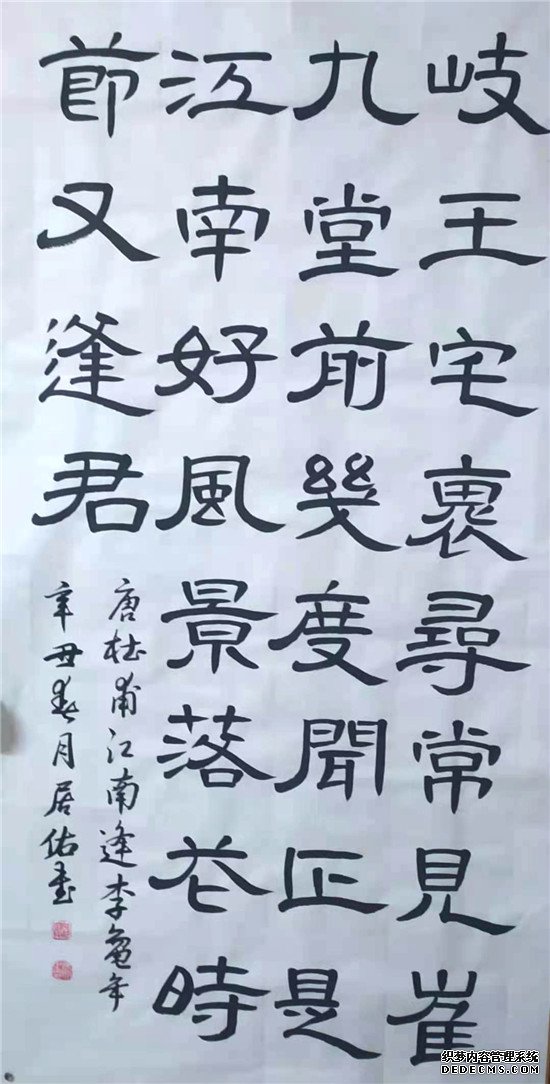 岐王宅裏尋常見崔
九堂前幾度聞正是
江南好風景落花時
節又逢君
唐杜甫江南逢李龜年
辛丑春月居佑書
织梦内容管理系统
DEDECMS.COM